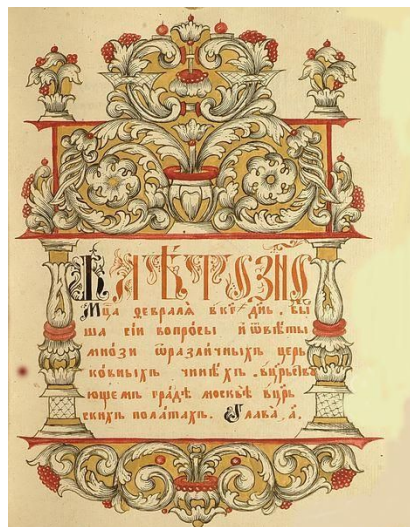 В лѣто ЗНѲ
Мц҃а февралѧ в к҃г днь. бы
ша сїи вопросы и ѿвѣты
мнози ѡ различныхъ церь
ковныхъ чинѣхъ. въ црьствꙋ
ющемъ градѣ москвѣ въ црь
скихъ полатахъ. Глава а҃.